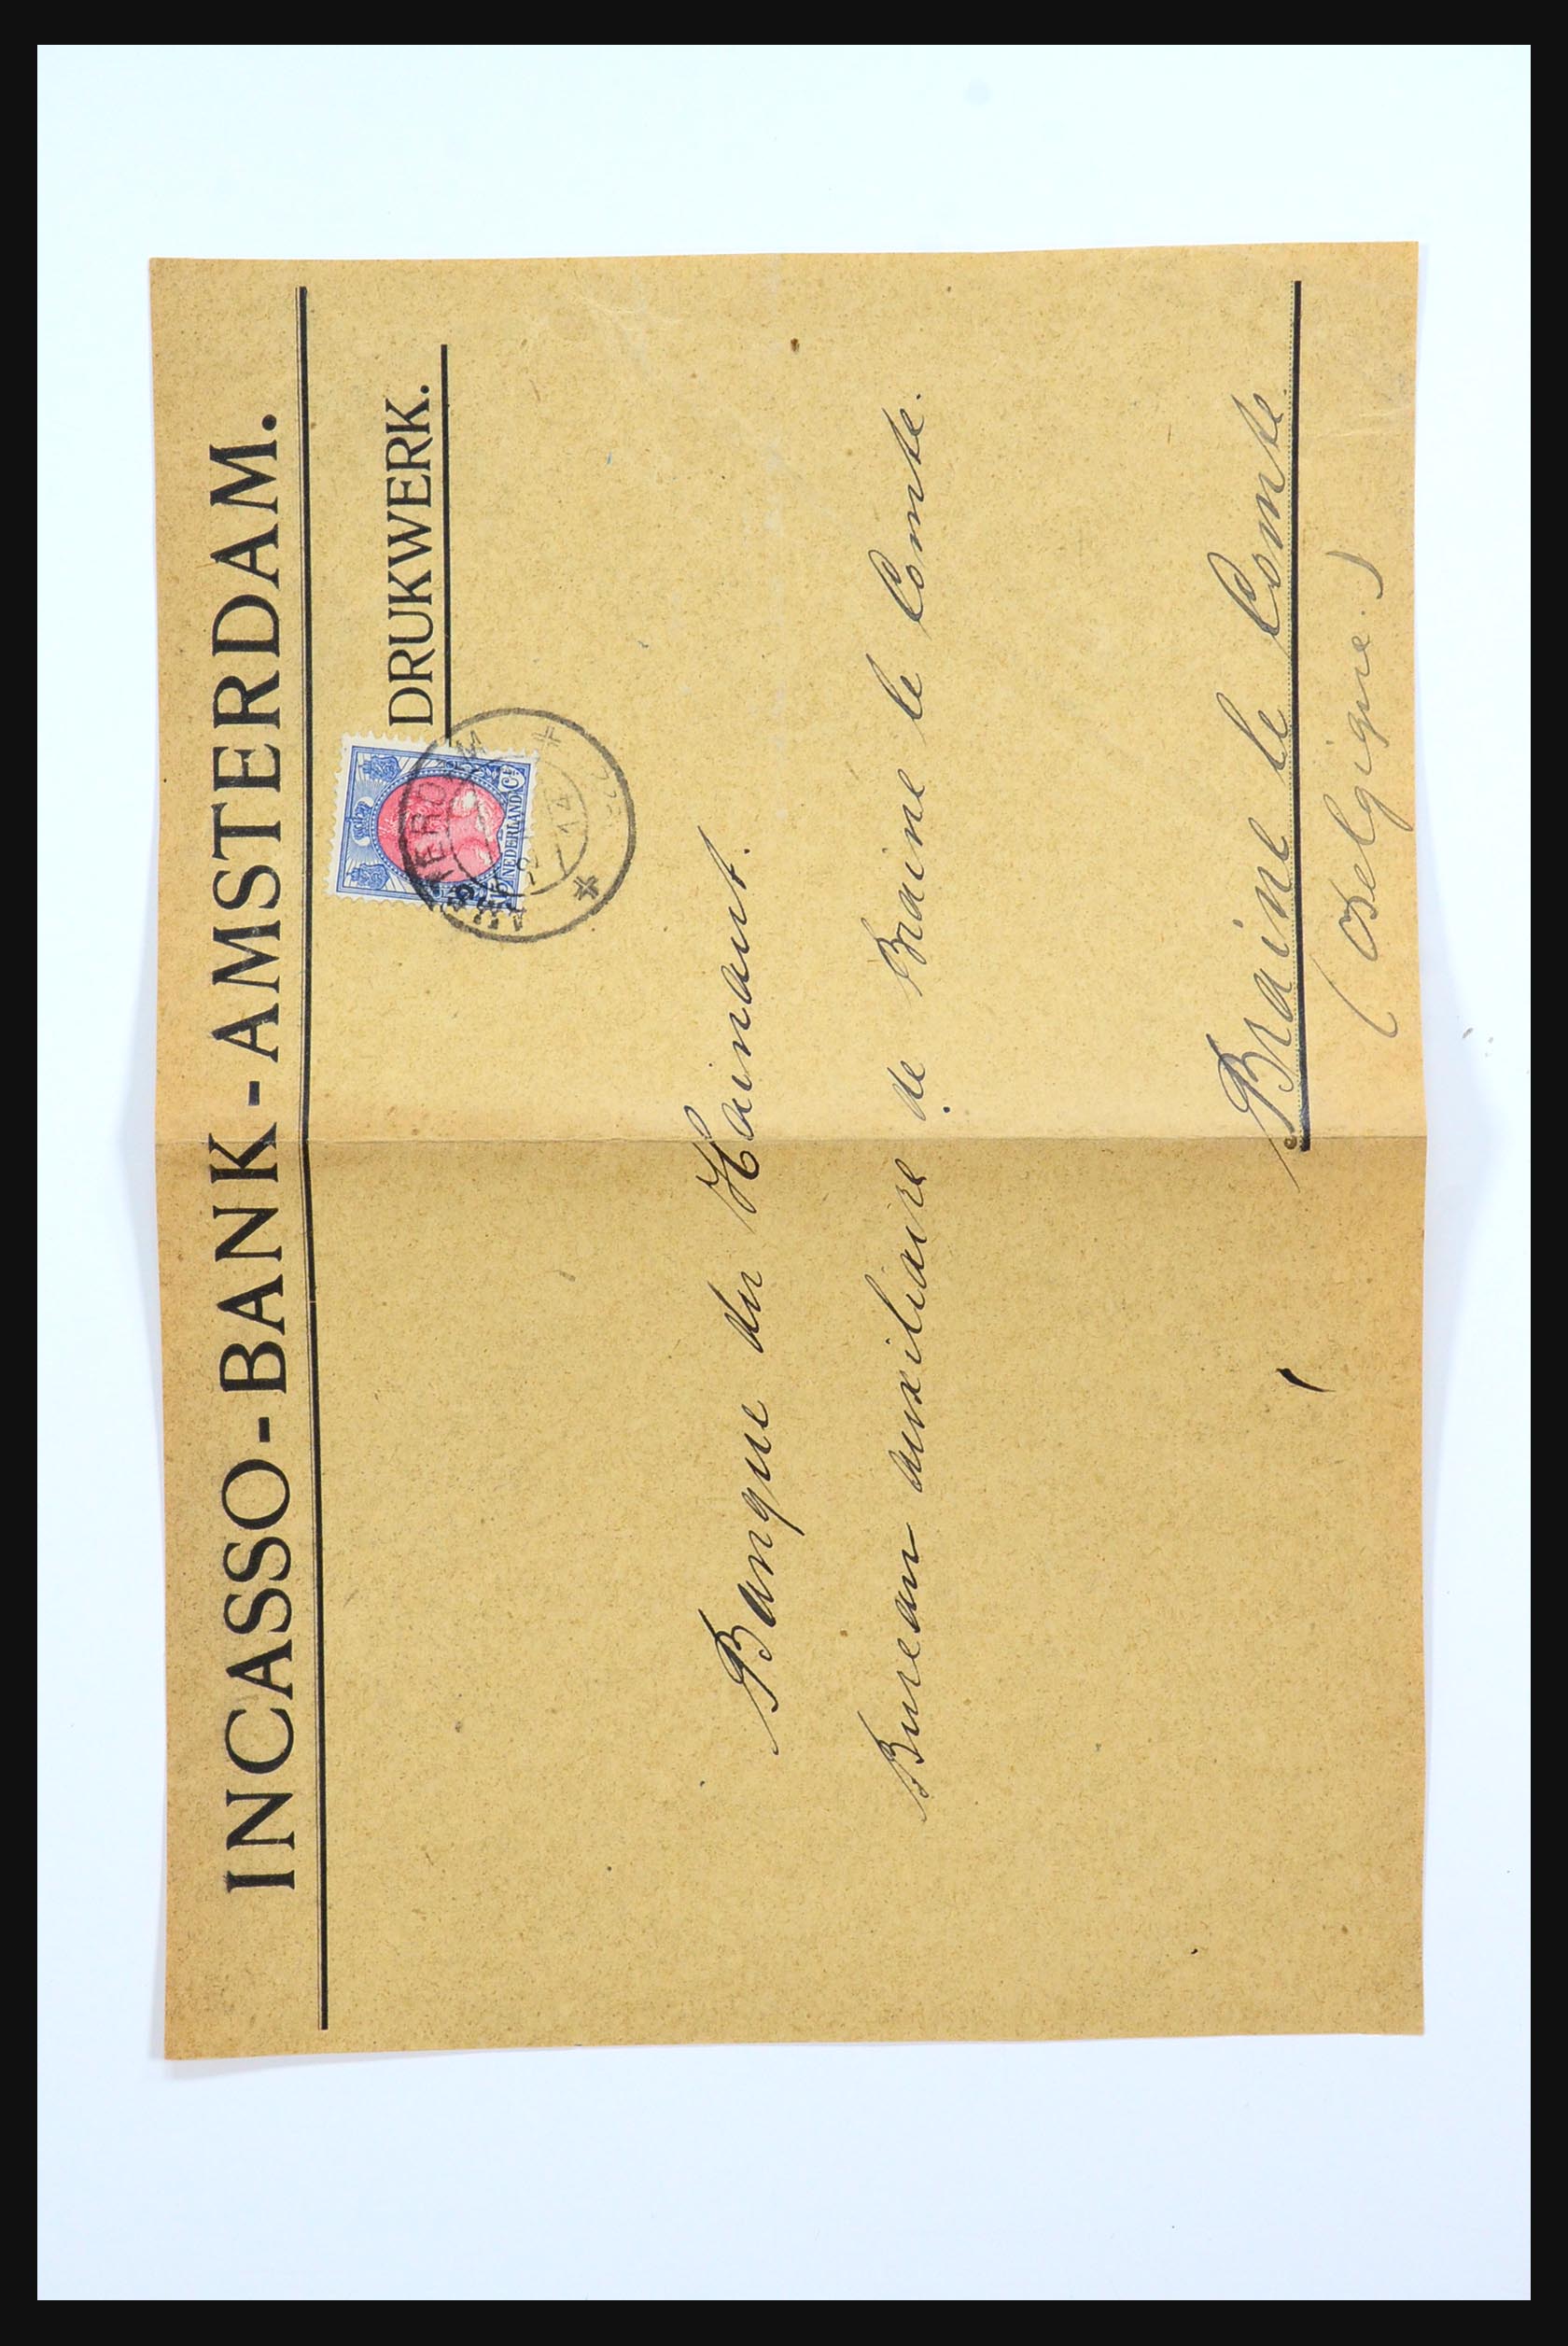 INCASSO-BANK-AMSTERDAM.
DRUKWERK.
NEDERLAND
Banque du Hainaut.
Bureau auxiliaire de Braine le Comte.
Braine le Comte
(Belgique.)